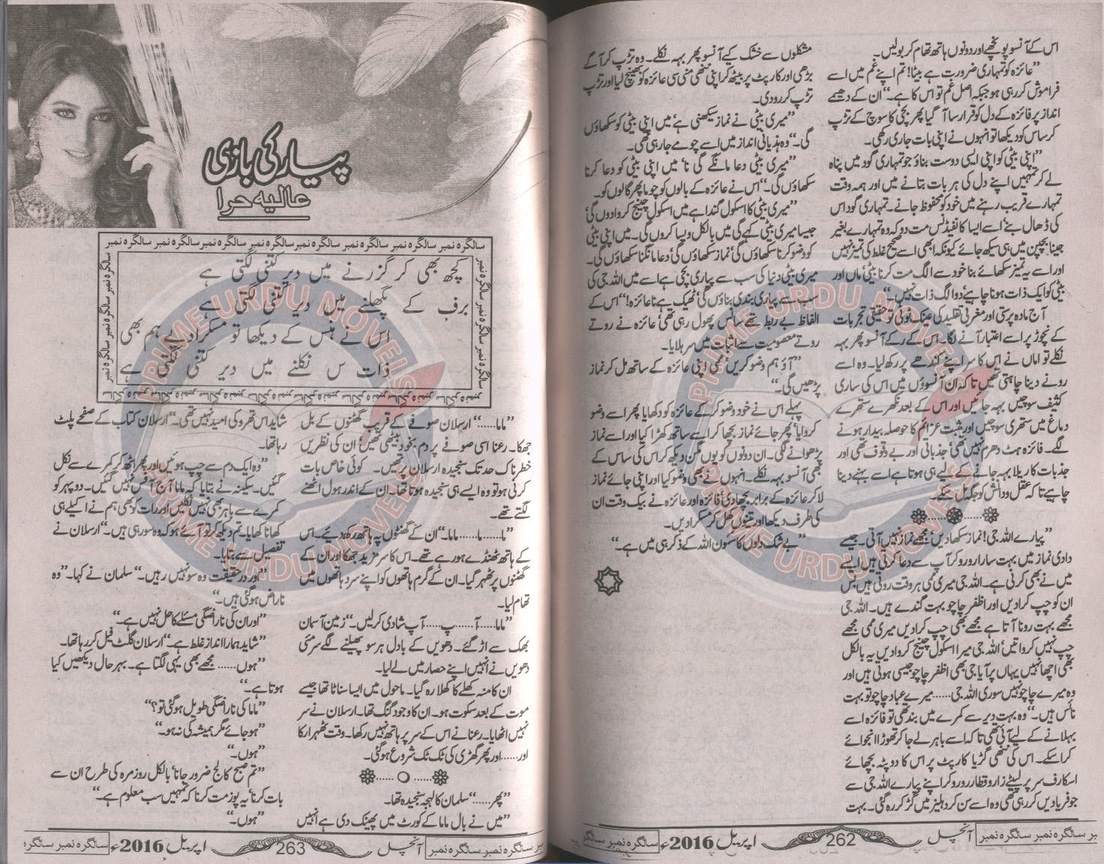 اس کے آنسو پونچھے اور دونوں ہاتھ تھام کر بولیں۔
”عائزہ کو تمہاری ضرورت ہے بیٹا! تم اپنے غم میں اسے
فراموش کر رہی ہو جبکہ اصل غم تو اس کا ہے۔“ ان کے دھیمے
انداز پر فائزہ کے دل کو قرار سا آ گیا پھر بچی کا سوچ کے تڑپ
کر ساس کو دیکھا تو انہوں نے اپنی بات جاری رکھی۔
”اپنی بیٹی کو اپنی ایسی دوست بناؤ جو تمہاری گود میں پناہ
لے کر تمہیں اپنے دل کی ہر بات بتانے میں اور ہمہ وقت
تمہارے قریب رہنے میں خود کو محفوظ جانے۔ تمہاری گود اس
کی ڈھال بنے اسے ایسا کانفیڈنس مت دو کہ وہ تمہارے بغیر
جینا بچپن میں ہی سیکھ جائے کیونکہ ابھی اسے صحیح غلط کی تمیز نہیں
اور اسے یہ تمیز سکھائے بنا خود سے الگ مت کرنا بیٹی ماں اور
بیٹی کو ایک ذات ہونا چاہیے دو الگ ذات نہیں۔“
آج مادہ پرستی اور مغربی تقلید کی عینک ٹوٹی تو حقیقی تجربات
کے نچوڑ پر اسے اعتبار آنے لگا۔ اس کے رکے آنسو پھر بہہ
نکلے تو اماں نے اس کا سر اپنے کندھے پر رکھ لیا۔ وہ اسے
رونے دینا چاہتی تھیں تاکہ ان آنسوؤں میں اس کی ساری
کثیف سوچیں بہہ جائیں اور اس کے بعد نکھرے ستھرے
دماغ میں ستھری سوچیں اور مثبت عزائم کا حوصلہ بیدار ہونے
لگے۔ فائزہ ہٹ دھرم نہیں تھی جذباتی اور بے وقوف تھی اور
جذبات کا ریلا بہہ جانے کے لیے ہی ہوتا ہے اسے بہنے دینا
چاہیے تاکہ عقل و دانش کو جگہ مل سکے۔
”پیارے اللہ جی! نماز سکھا دیں مجھے نماز نہیں آتی۔ جیسے
دادی نماز میں بہت سارا رو رو کر آپ سے دعا کرتی ہیں ایسے
میں نے بھی کرنی ہے۔ اللہ جی میری ممی ہر وقت روتی ہیں بس
ان کو چپ کرا دیں اور اظفر چاچو بہت گندے ہیں۔ اللہ جی
مجھے بہت رونا آتا ہے مجھے بھی چپ کرا دیں میری ممی مجھے
چپ نہیں کرواتیں اللہ جی میرا اسکول چینج کروا دیں یہ بالکل
بھی اچھا نہیں یہاں پر آیا جی بھی اظفر چاچو جیسی ہوتی ہیں اور
وہ میرے چاچو نہیں سوری اللہ جی...... میرے عباد چاچو تو بہت
نائس ہیں۔“ وہ بہت دیر سے کمرے میں بند تھی تو فائزہ اسے
بہلانے کے لیے آئی تھی تاکہ اسے باہر لے جا کر تھوڑا انجوائے
کرا سکے۔ اس کی ننھی گڑیا کارپٹ پر اس کا دوپٹہ بچھائے
اسکارف سر پر لپیٹے زار و قطار رو رو کر اپنے پیارے اللہ جی سے
جو فریادیں کر رہی تھی وہ اسے سن کر دہلیز میں گڑ کر رہ گئی۔ بہت
مشکلوں سے خشک کیے آنسو پھر بہہ نکلے۔ وہ تڑپ کر آگے
بڑھی اور کارپٹ پر بیٹھ کر اپنی ننھی منی سی عائزہ کو بھینچ لیا اور تڑپ
تڑپ کر رو دی۔
”میری بیٹی نے نماز سیکھنی ہے میں اپنی بیٹی کو سکھاؤں
گی۔“ وہ ہذیانی انداز میں اسے چومے جا رہی تھی۔
”میری بیٹی دعا مانگے گی نا میں اپنی بیٹی کو دعا کرنا
سکھاؤں گی۔“ اس نے عائزہ کے بالوں کو چوما پھر گالوں کو۔
”میری بیٹی کا اسکول گندا ہے میں اسکول چینج کروا دوں گی
جیسا میری بیٹی کہے گی میں بالکل ویسا کروں گی۔ میں اپنی بیٹی
کو وضو کرنا سکھاؤں گی نماز سکھاؤں گی دعا مانگنا سکھاؤں گی۔
میری بیٹی دنیا کی سب سے پیاری بچی ہے اسے میں اللہ جی کی
سب سے پیاری بندی بناؤں گی ٹھیک ہے نا عائزہ!“ اس کے
الفاظ بے ربط تھے سانس پھول رہی تھی عائزہ نے روتے
روتے معصومیت سے اثبات میں سر ہلایا۔
”آؤ ہم وضو کریں ممی اپنی عائزہ کے ساتھ مل کر نماز
پڑھیں گی۔“
پہلے اس نے خود وضو کر کے عائزہ کو دکھایا پھر اسے وضو
کروایا پھر جائے نماز بچھا کر اسے ساتھ کھڑا کیا اور اسے نماز
پڑھوانے لگی۔ ان دونوں کو یوں مگن دیکھ کر اس کی ساس کے
بھی آنسو بہہ نکلے۔ انہوں نے بھی وضو کیا اور اپنی جائے نماز
لا کر عائزہ کے برابر بچھا دی فائزہ اور عائزہ نے بیک وقت ان
کی طرف دیکھا اور تینوں کھل کر مسکرا دیں۔
”بے شک دلوں کا سکون اللہ کے ذکر ہی میں ہے۔“
سالگرہ نمبر سالگرہ نمبر آنچل 262 اپریل 2016ء سالگرہ نمبر
پیار کی بازی
عالیہ حرا
سالگرہ نمبر سالگرہ نمبر سالگرہ نمبر سالگرہ نمبر سالگرہ نمبر سالگرہ نمبر
کچھ بھی کر گزرنے میں دیر کتنی لگتی ہے
برف کے پگھلنے میں دیر کتنی لگتی ہے
اس نے ہنس کے دیکھا تو مسکرا دیے ہم بھی
ذات سے نکلنے میں دیر کتنی لگتی ہے
”ماما......“ ارسلان صوفے کے قریب گھٹنوں کے بل
جھکا۔ رعنا اسی صوفے پر دم بخود بیٹھی تھیں ان کی نظریں
خطرناک حد تک سنجیدہ ارسلان پر تھیں۔ کوئی خاص بات
کرنی ہو تو وہ ایسے ہی سنجیدہ ہوتا تھا۔ ان کے اندر ہول اٹھنے
لگتے تھے۔
”ما...... ما...... ماما۔“ ان کے گھٹنوں پہ ہاتھ رکھ دیے۔ اس
کے ہاتھ ٹھنڈے ہو رہے تھے۔ اس کا سر مزید جھکا اور ان کے
گھٹنوں پر ٹھہر گیا۔ ان کے گرم ہاتھوں کو اپنے سرد ہاتھوں میں
تھام لیا۔
”ماما...... آ...... پ...... آپ شادی کر لیں۔“ زمین آسمان
بھک سے اڑ گئے۔ دھویں کے بادل ہر سو پھیلنے لگے سرمئی
دھویں نے انہیں اپنے حصار میں لے لیا۔
ان کا منہ کھلے کا کھلا رہ گیا۔ ماحول میں ایسا سناٹا تھا جیسے
موت کے بعد سکوت ہو۔ ان کا وجود گنگ تھا۔ ارسلان نے سر
نہیں اٹھایا۔ رعنا نے اس کے سر پر ہاتھ نہیں رکھا۔ وقت ٹھہرا رکا
اور...... اور پھر گھڑی کی ٹک ٹک شروع ہو گئی۔
”پھر......“ سلمان کا لہجہ سنجیدہ تھا۔
”میں نے بال ماما کے کورٹ میں پھینک دی ہے انہیں
شاید اس تھرو کی امید نہیں تھی۔“ ارسلان کتاب کے صفحے پلٹ
رہا تھا۔
”وہ ایک دم سے چپ ہوئیں اور پھر اٹھ کر کمرے سے نکل
گئیں۔ سکینہ نے بتایا کہ ماما آج آفس نہیں گئیں۔ دوپہر کو
کمرے سے باہر بھی نہیں نکلیں اور رات کو بھی ہم نے اکیلے ہی
کھانا کھایا۔ تم دیکھ کر تو آئے ہو کہ وہ سو رہی ہیں۔“ ارسلان نے
تفصیل سے بتایا۔
”اور در حقیقت وہ سو نہیں رہیں۔“ سلمان نے کہا۔ ”وہ
ناراض ہو گئی ہیں۔“
”اور ان کی ناراضگی مسئلے کا حل نہیں ہے۔“
”شاید ہمارا انداز غلط ہے۔“ ارسلان گلٹ فیل کر رہا تھا۔
”ہوں...... مجھے بھی یہی لگتا ہے۔ بہرحال دیکھیں کیا
ہوتا ہے۔“
”ماما کی ناراضگی طویل ہو گئی تو؟“
”ہو جائے مگر ہمیشہ کی نہ ہو۔“
”ہوں۔“
”تم صبح کالج ضرور جانا بالکل روزمرہ کی طرح ان سے
بات کرنا یہ پوز مت کرنا کہ تمہیں سب معلوم ہے۔“
”ہوں۔“
سالگرہ نمبر سالگرہ نمبر آنچل 263 اپریل 2016ء سالگرہ نمبر
PRIME URDU NOVELS
PRIME URDU NOVELS